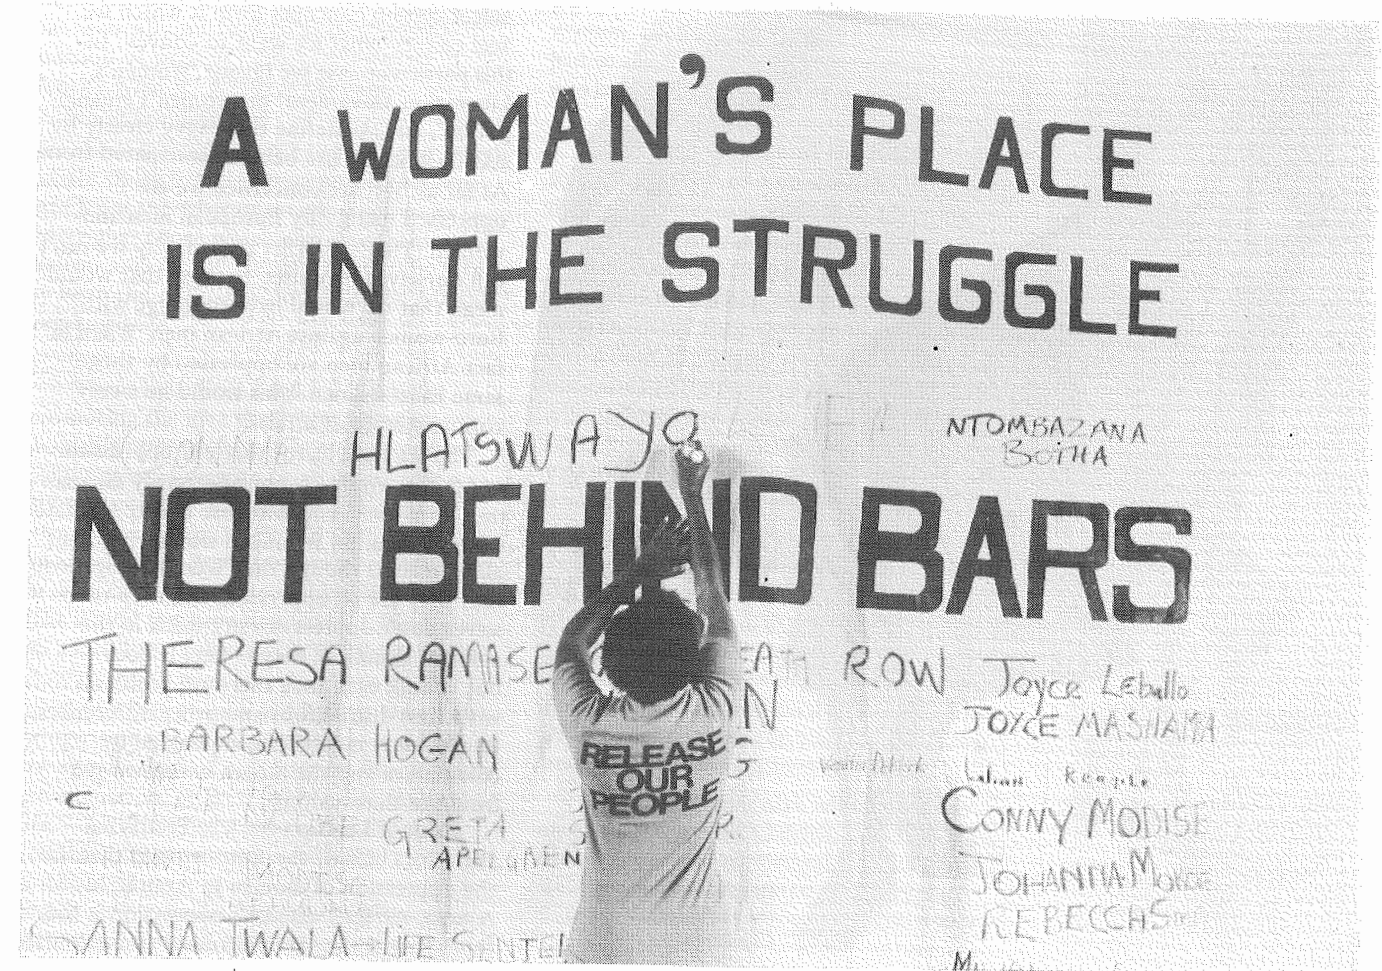 A WOMAN'S PLACE
IS IN THE STRUGGLE
HLATSWAYO
NTOMBAZANA
BOTHA
NOT BEHIND BARS
THERESA RAMASE ROW
Joyce Leballo
JOYCE MASHAMA
BARBARA HOGAN
RELEASE
OUR
PEOPLE
CONNY MODISE
GRETA
APELGREN
JOHANNA
REBECCA
TWALA - LIFE